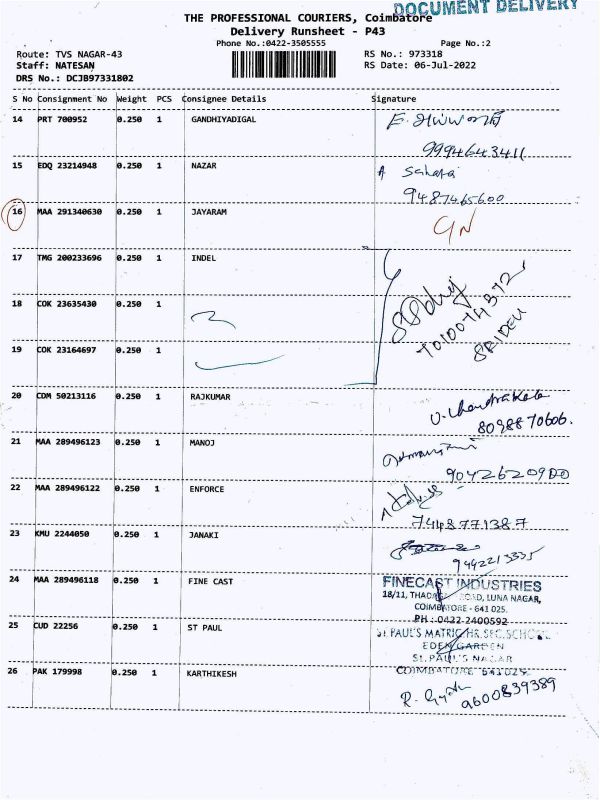 DOCUMENT DELIVERY
THE PROFESSIONAL COURIERS, Coimbatore
Delivery Runsheet - P43
Phone No.:0422-3505555 Page No.:2
Route: TVS NAGAR-43 RS No.: 973318
Staff: NATESAN RS Date: 06-Jul-2022
DRS No.: DCJB97331802
S No Consignment No Weight PCS Consignee Details Signature
14 PRT 700952 0.250 1 GANDHIYADIGAL
9994643411
15 EDQ 23214948 0.250 1 NAZAR
9487465600
16 MAA 291340630 0.250 1 JAYARAM
17 TMG 200233696 0.250 1 INDEL
18 COK 23635430 0.250 1
SRIDEVI
19 COK 23164697 0.250 1
20 CDM 50213116 0.250 1 RAJKUMAR
U. Chandrakala
8098870606.
21 MAA 289496123 0.250 1 MANOJ
22 MAA 289496122 0.250 1 ENFORCE
7448771387
23 KMU 2244050 0.250 1 JANAKI
9442213335
24 MAA 289496118 0.250 1 FINE CAST FINECAST INDUSTRIES
18/11, ROAD, LUNA NAGAR,
COIMBATORE - 641 025.
PH : 0422-2400592
25 CUD 22256 0.250 1 ST PAUL ST. PAUL'S MATRIC HR. SEC. SCHOOL
EDEN GARDEN
ST. PAUL'S NAGAR
COIMBATORE 641 025
26 PAK 179998 0.250 1 KARTHIKESH
9600839389